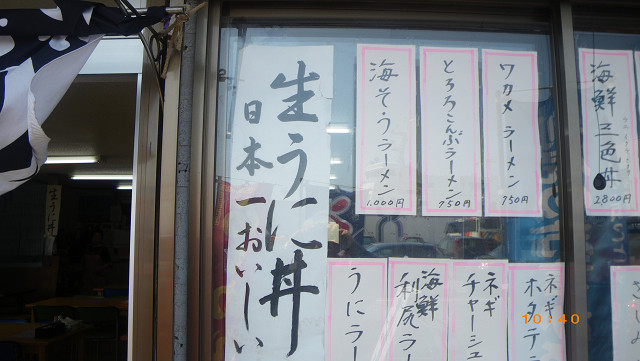 海鮮三色丼
2800円
ワカメラーメン
750円
とろろこんぶラーメン
750円
海そうラーメン
1.000円
生うに丼
日本一おいしい
生うに丼
ネギ
ホタテラ
ネギ
チャーシュ
海鮮
利尻ラー
うにラー
10:40